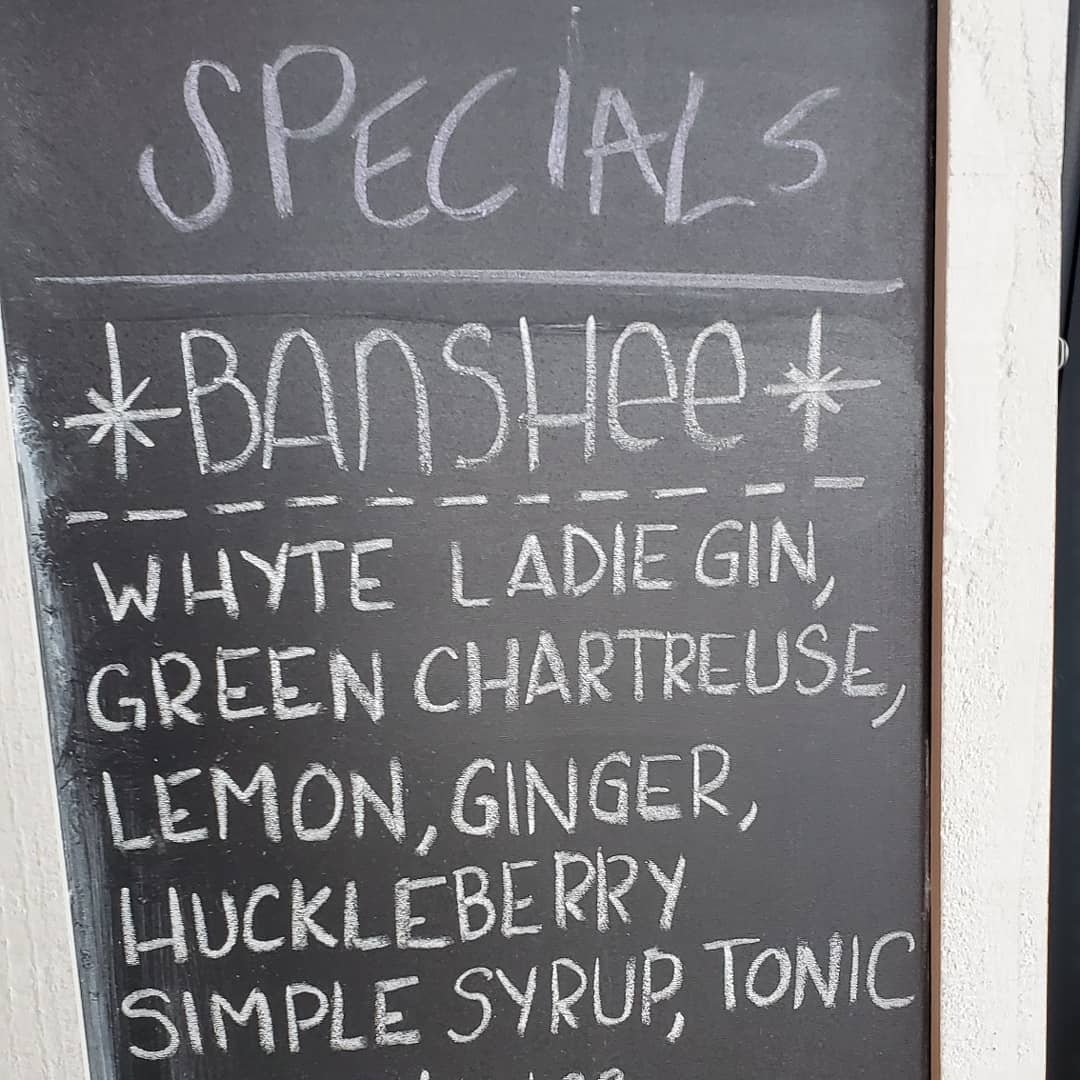 SPECIALS
*BANSHee*
WHYTE LADIE GIN,
GREEN CHARTREUSE,
LEMON, GINGER,
HUCKLEBERRY
SIMPLE SYRUP, TONIC